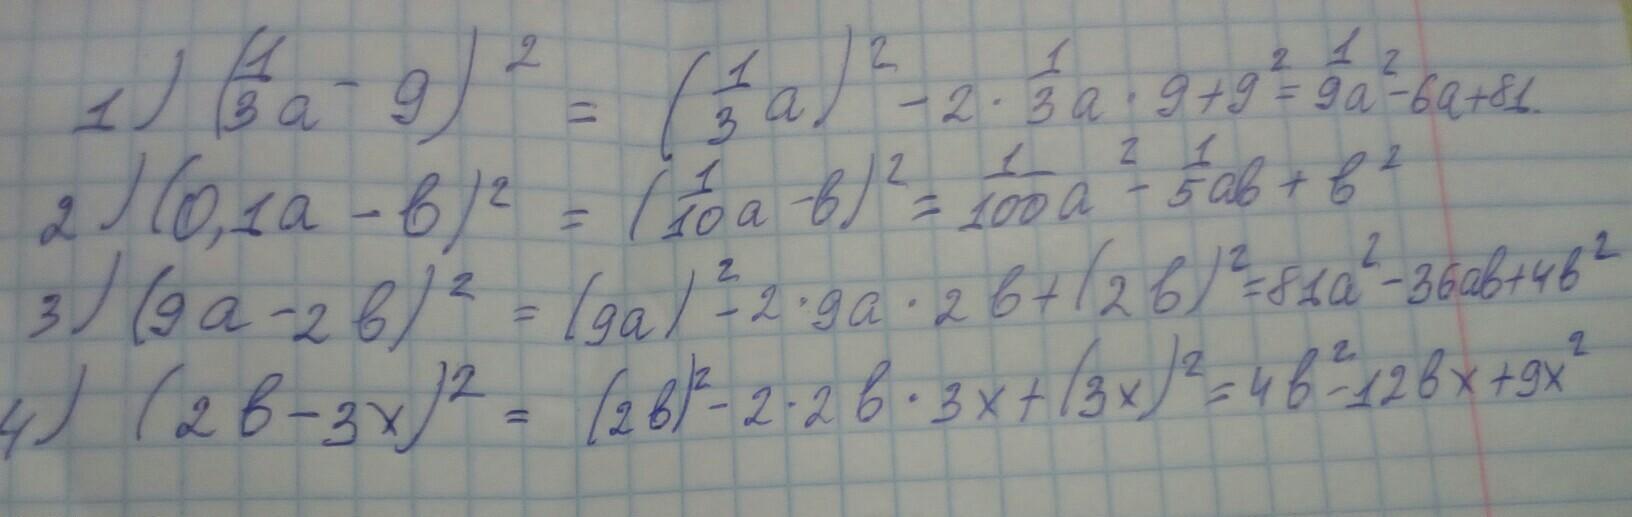 1) (1/3 a - 9)² = (1/3 a)² - 2 · 1/3 a · 9 + 9² = 1/9 a² - 6a + 81.
2) (0,1a - b)² = (1/10 a - b)² = 1/100 a² - 1/5 ab + b²
3) (9a - 2b)² = (9a)² - 2 · 9a · 2b + (2b)² = 81a² - 36ab + 4b²
4) (2b - 3x)² = (2b)² - 2 · 2b · 3x + (3x)² = 4b² - 12bx + 9x²